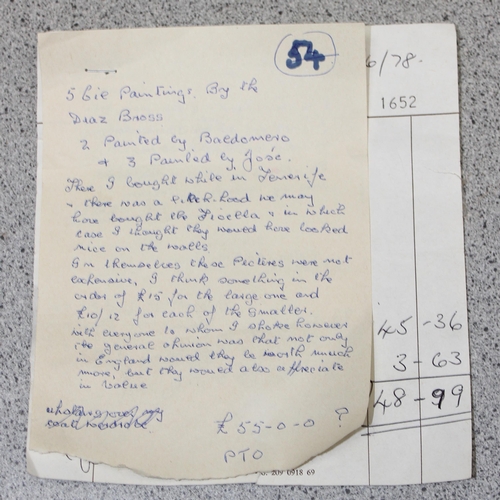 54
5 Oil Paintings. By the
Diaz Bross
2 Painted by. Baldomero
+ 3 Painted by José.
These I bought while in Tenerife
+ there was a likli-hood we may
have bought the Fioella + in which
case I thought they would have looked
nice on the walls
In themselves these Pictures were not
expensive, I think something in the
order of £15 for the large one and
£10/12 for each of the smaller.
with everyone to whom I spoke however
the general opinion was that not only
in England would they be worth much
more, but they would also appreciate
in value
my
£55-0-0 ?
PTO
6/78.
1652
45-36
3-63
48-99
209 0918 69